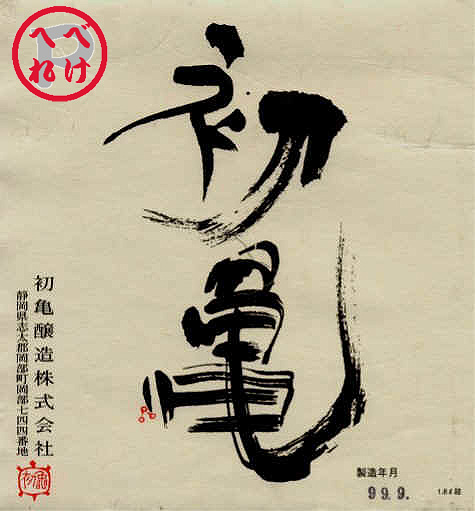 べけ
へれ
初亀
初亀醸造株式会社
静岡県志太郡岡部町岡部七四四番地
製造年月
99.9.
1.8ℓ詰